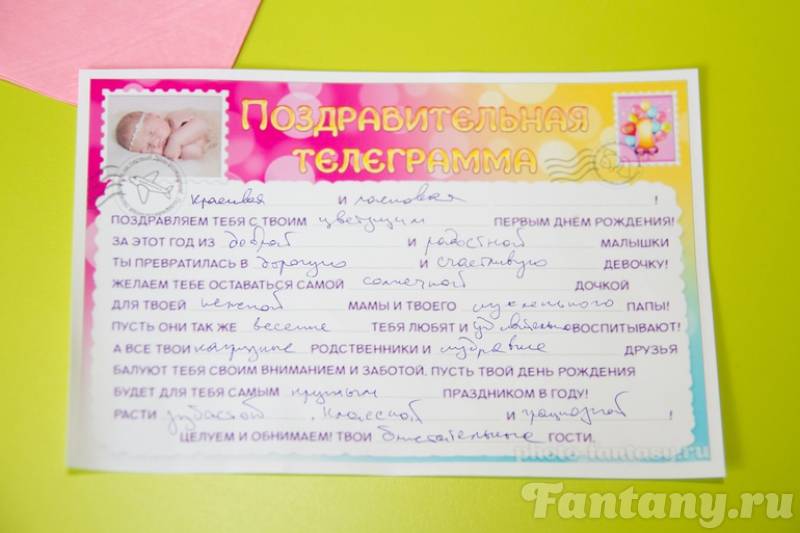 ПОЗДРАВИТЕЛЬНАЯ
ТЕЛЕГРАММА
Красивая и ласковая !
ПОЗДРАВЛЯЕМ ТЕБЯ С ТВОИМ цветущим ПЕРВЫМ ДНЁМ РОЖДЕНИЯ!
ЗА ЭТОТ ГОД ИЗ доброй И радостной МАЛЫШКИ
ТЫ ПРЕВРАТИЛАСЬ В дорогую И счастливую ДЕВОЧКУ!
ЖЕЛАЕМ ТЕБЕ ОСТАВАТЬСЯ САМОЙ солнечной ДОЧКОЙ
ДЛЯ ТВОЕЙ нежной МАМЫ И ТВОЕГО ПАПЫ!
ПУСТЬ ОНИ ТАК ЖЕ ТЕБЯ ЛЮБЯТ И ВОСПИТЫВАЮТ!
А ВСЕ ТВОИ РОДСТВЕННИКИ И ДРУЗЬЯ
БАЛУЮТ ТЕБЯ СВОИМ ВНИМАНИЕМ И ЗАБОТОЙ. ПУСТЬ ТВОЙ ДЕНЬ РОЖДЕНИЯ
БУДЕТ ДЛЯ ТЕБЯ САМЫМ крутым ПРАЗДНИКОМ В ГОДУ!
РАСТИ зубастой , классной И !
ЦЕЛУЕМ И ОБНИМАЕМ! ТВОИ блистательные ГОСТИ.
photo-fantasy.ru
Fantany.ru